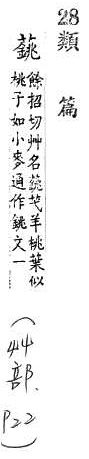 28 類篇
餘招切艸名芅羊桃葉似
桃子如小麥通作銚文一
(艸部. P22)